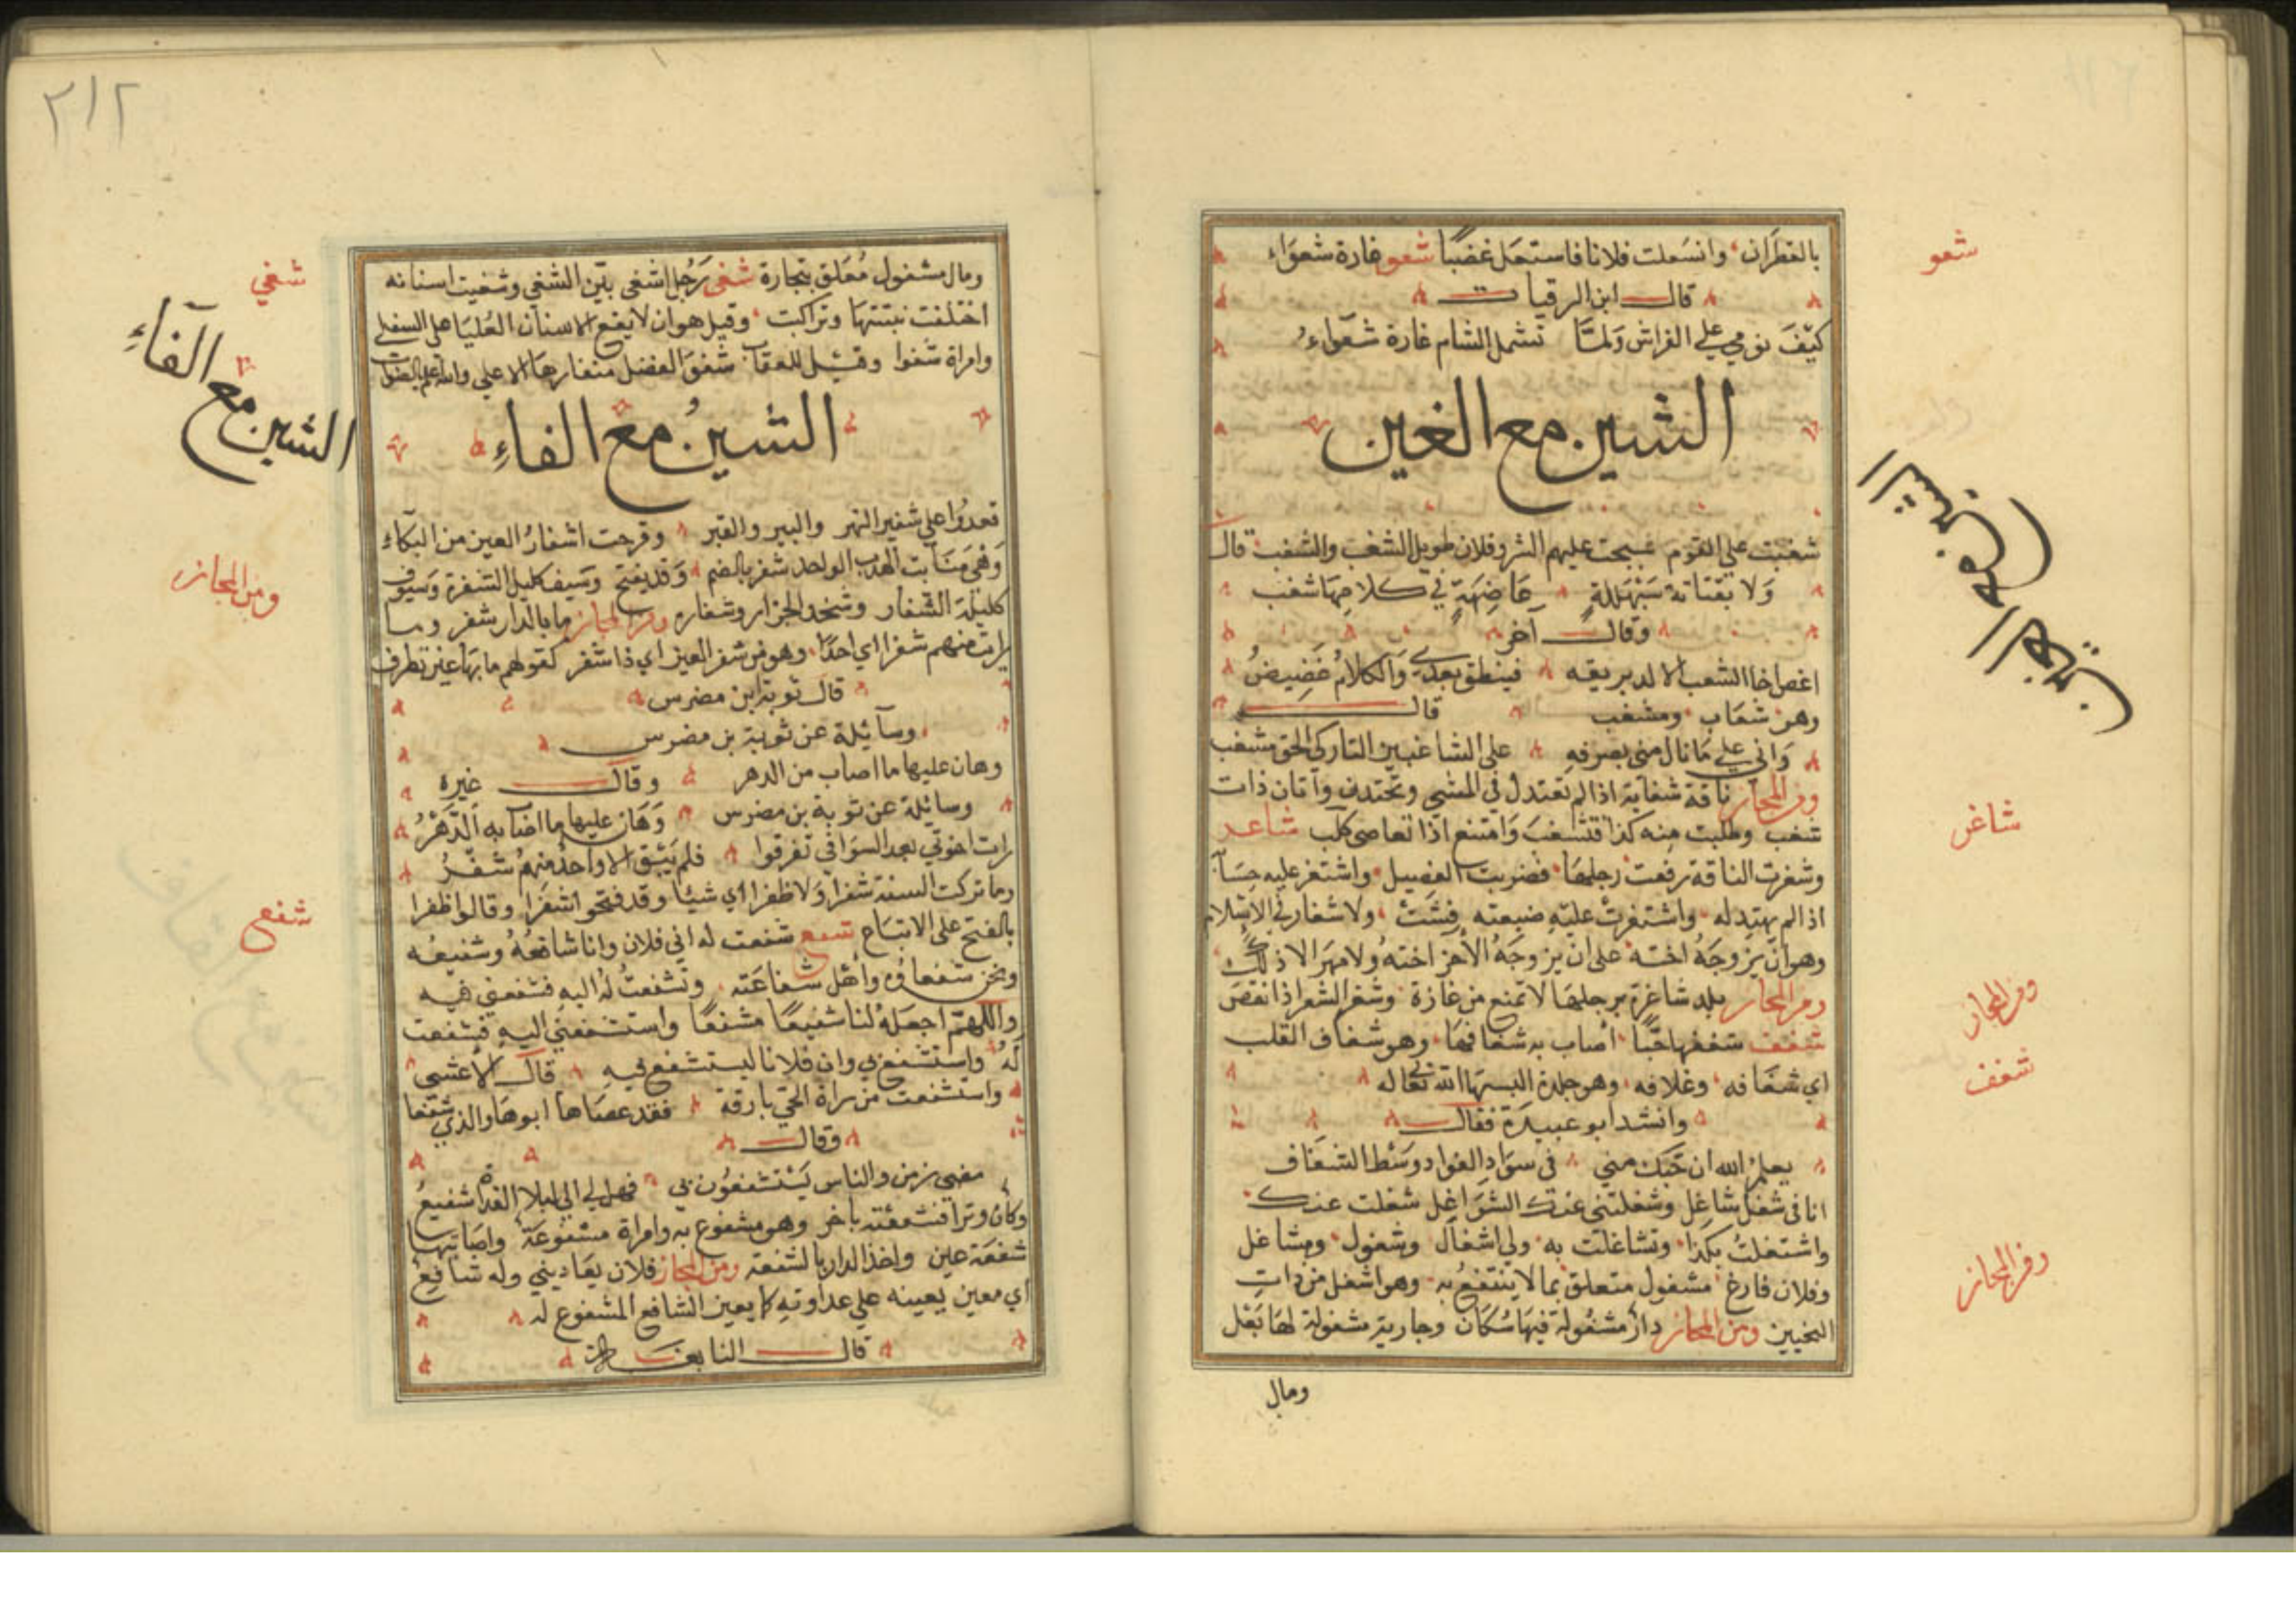 شعو
بالقطران وانسعلت فلانا فاستعل غضبا شعو غارة شعواء
قال ابن الرقيات
كيف نومي علي الفراش ولما تشمل الشام غارة شعواء
الشين مع الغين
الشين مع الغين
شغبت علي القوم هيجت عليهم الشر وفلان طويل الشغب والشغب قال
ولا بقتاتة سبهللة عاضهة في كلامها شغب
وقال آخر
اغص اخا الشغب الالد بريقه فينطق بعدي والكلام غضيض
وهو شغاب ومشغب قال
واني علي ما نال مني بصرفه على الشاغبين التاركي الحق مشغب
ومن المجاز ناقة شغابة اذا لم تعتدل في المشي وتحتدف واتان ذات
شاغر
شغب وطلبت منه كذا فتشاغب وامتنع اذا تعاصى كلب شاغر
وشغرت الناقة رفعت رجلها فضربت الفصيل واشتغر عليه حسابه
اذا لم يهتد له واشتغرت عليه ضيعته فشت ولا شغار في الاسلام
وهو ان يزوجه اخته على ان يزوجه الآخر اخته ولا مهر الا ذلك
ومن المجاز
ومن المجاز بلد شاغرة برجلها لا تمنع من غارة وشغر الشعر اذا نقص
شغف
شغف شغفها حبا اصاب به شغافها وهو شغاف القلب
اي شغافه وغلافه وهو جلدة البسها الله تعاله
وانشد ابو عبيدة فقال
يعلم الله ان حبك مني في سواد الفواد وسط الشغاف
انا في شغل شاغل وشغلتني عنك الشواغل شغلت عنك
واشتغلت بكذا وتشاغلت به ولي اشغال وشغول ومشاغل
ومن المجاز
وفلان فارغ مشغول متعلق بما لا ينتفع به وهو اشغل من ذات
النحيين ومن المجاز دار مشغولة فيها سكان وجارية مشغولة لها بعل
ومال
٢١٢
شغي
ومال مشغول معلق بتجارة شغى رجل اشغى بين الشغي وشغيت اسنانه
اختلفت نبتتها وتراكبت وقيل هو ان لا يقع الاسنان العليا على السفلى
وامراة شغوا وقيل للعقاب شغوا لفضل منقارها الاعلي والله اعلم بالصواب
الشين مع الفاء
الشين مع الفاء
قعدوا علي شفير النهر والبير والقبر وقرحت اشفار العين من البكاء
ومن المجاز
وهي منابت الهدب الواحد شفر بالضم وقد يفتح وسيف كليل الشفرة وسيوف
كليلة الشفار وشحذ الجزار وشفاره ومن المجاز ما بالدار شفر وما
رايت منهم شفرا اي احدا وهو من شفر العين اي ذا شفر كقولهم ما بها عين تطرف
قال توبة ابن مضرس
وسآئلة عن توبة بن مضرس
وهان عليها ما اصاب من الدهر وقال غيره
وسائلة عن توبة بن مضرس وهان عليها ما اصاب به الدهر
رات اخوتي بعد السوافي تفرقوا فلم يبق الا واحد منهم شفر
وما تركت السنة شفرا ولا ظفرا اي شيئا وقد فتحوا شفرا وقالوا ظفرا
شفع
بالفتح على الاتباع شفع شفعت له الي فلان وانا شافعه وشفيعه
ونحن شفعاوه واهل شفاعته وتشفعت له اليه فشفعني فيه
واللهم اجعله لنا شفيعا مشفعا واستشفعني اليه فشفعت
له واستشفع بي وان فلانا ليستشفع فيه قال الاعشى
واستشفعت من سراة الحي بارقة فقد عصاها ابوها والذي شفعا
وقال
مضى زمن والناس يستشفعون بي فهل لي الي ليلا الغداة شفيع
وكان وترا فشفعته باخر وهو مشفوع به وامراة مشفوعة واصابتها
شفعة عين واخذ الدار بالشفعة ومن المجاز فلان يعاديني وله شافع
اي معين يعينه علي عداوته كما يعين الشافع المشفوع له
قال النابغة